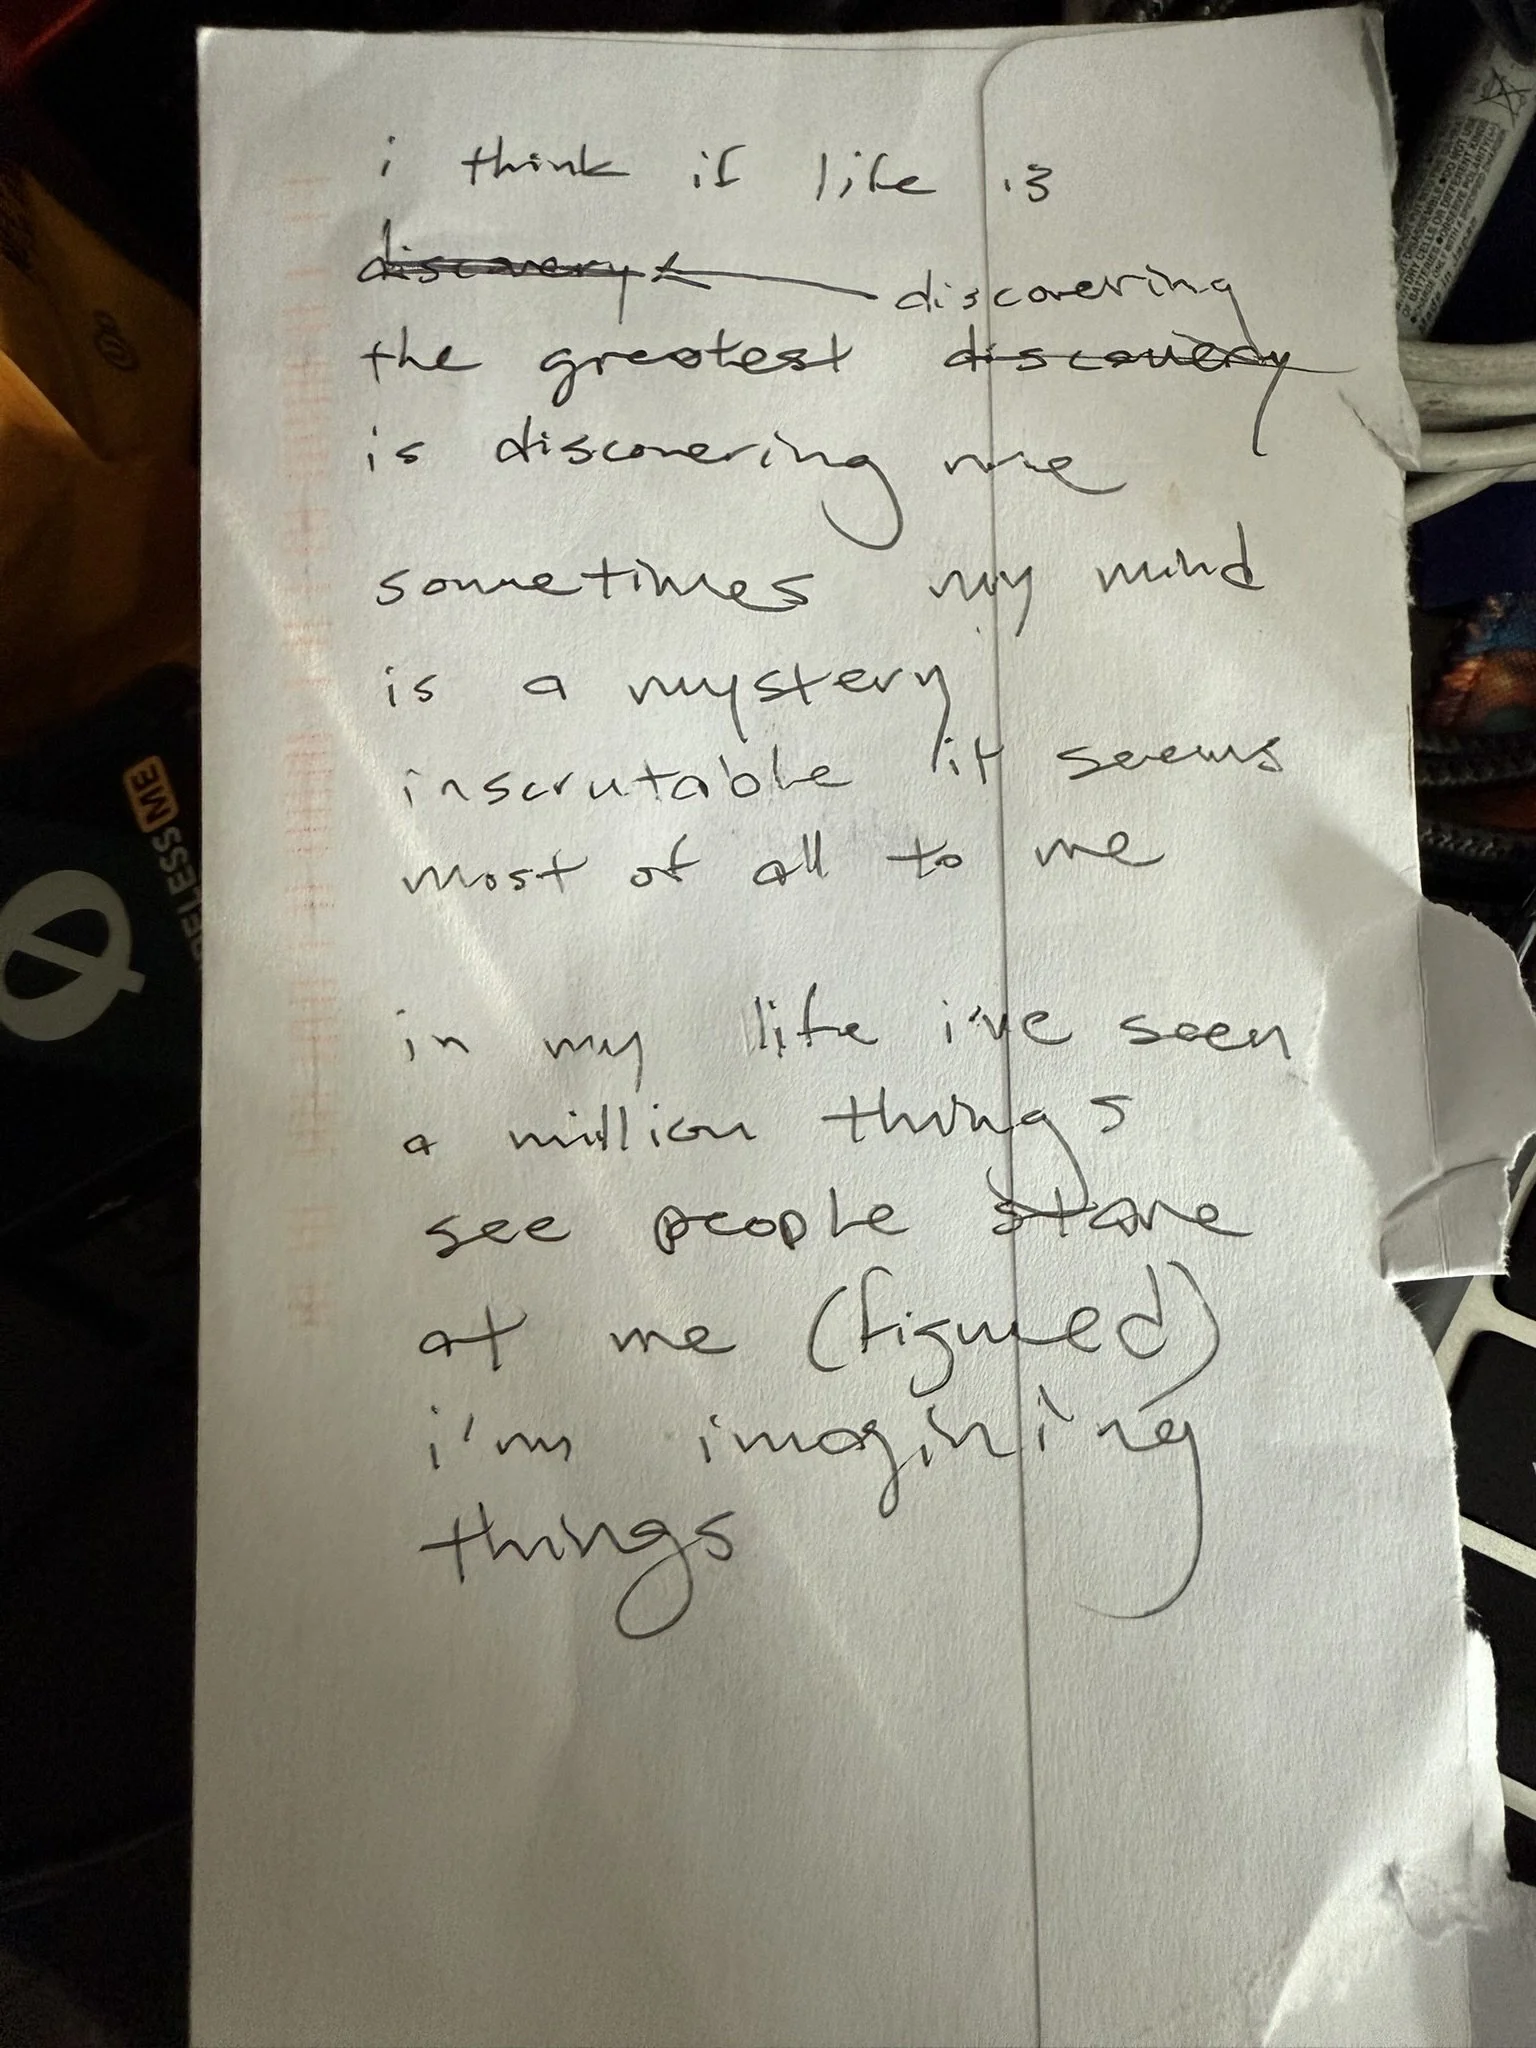 i think if life is
discovery discovering
the greatest discovery
is discovering me
sometimes my mind
is a mystery
inscrutable it seems
most of all to me
in my life i've seen
a million things
see people stare
at me (figured)
i'm imagining
things
ME